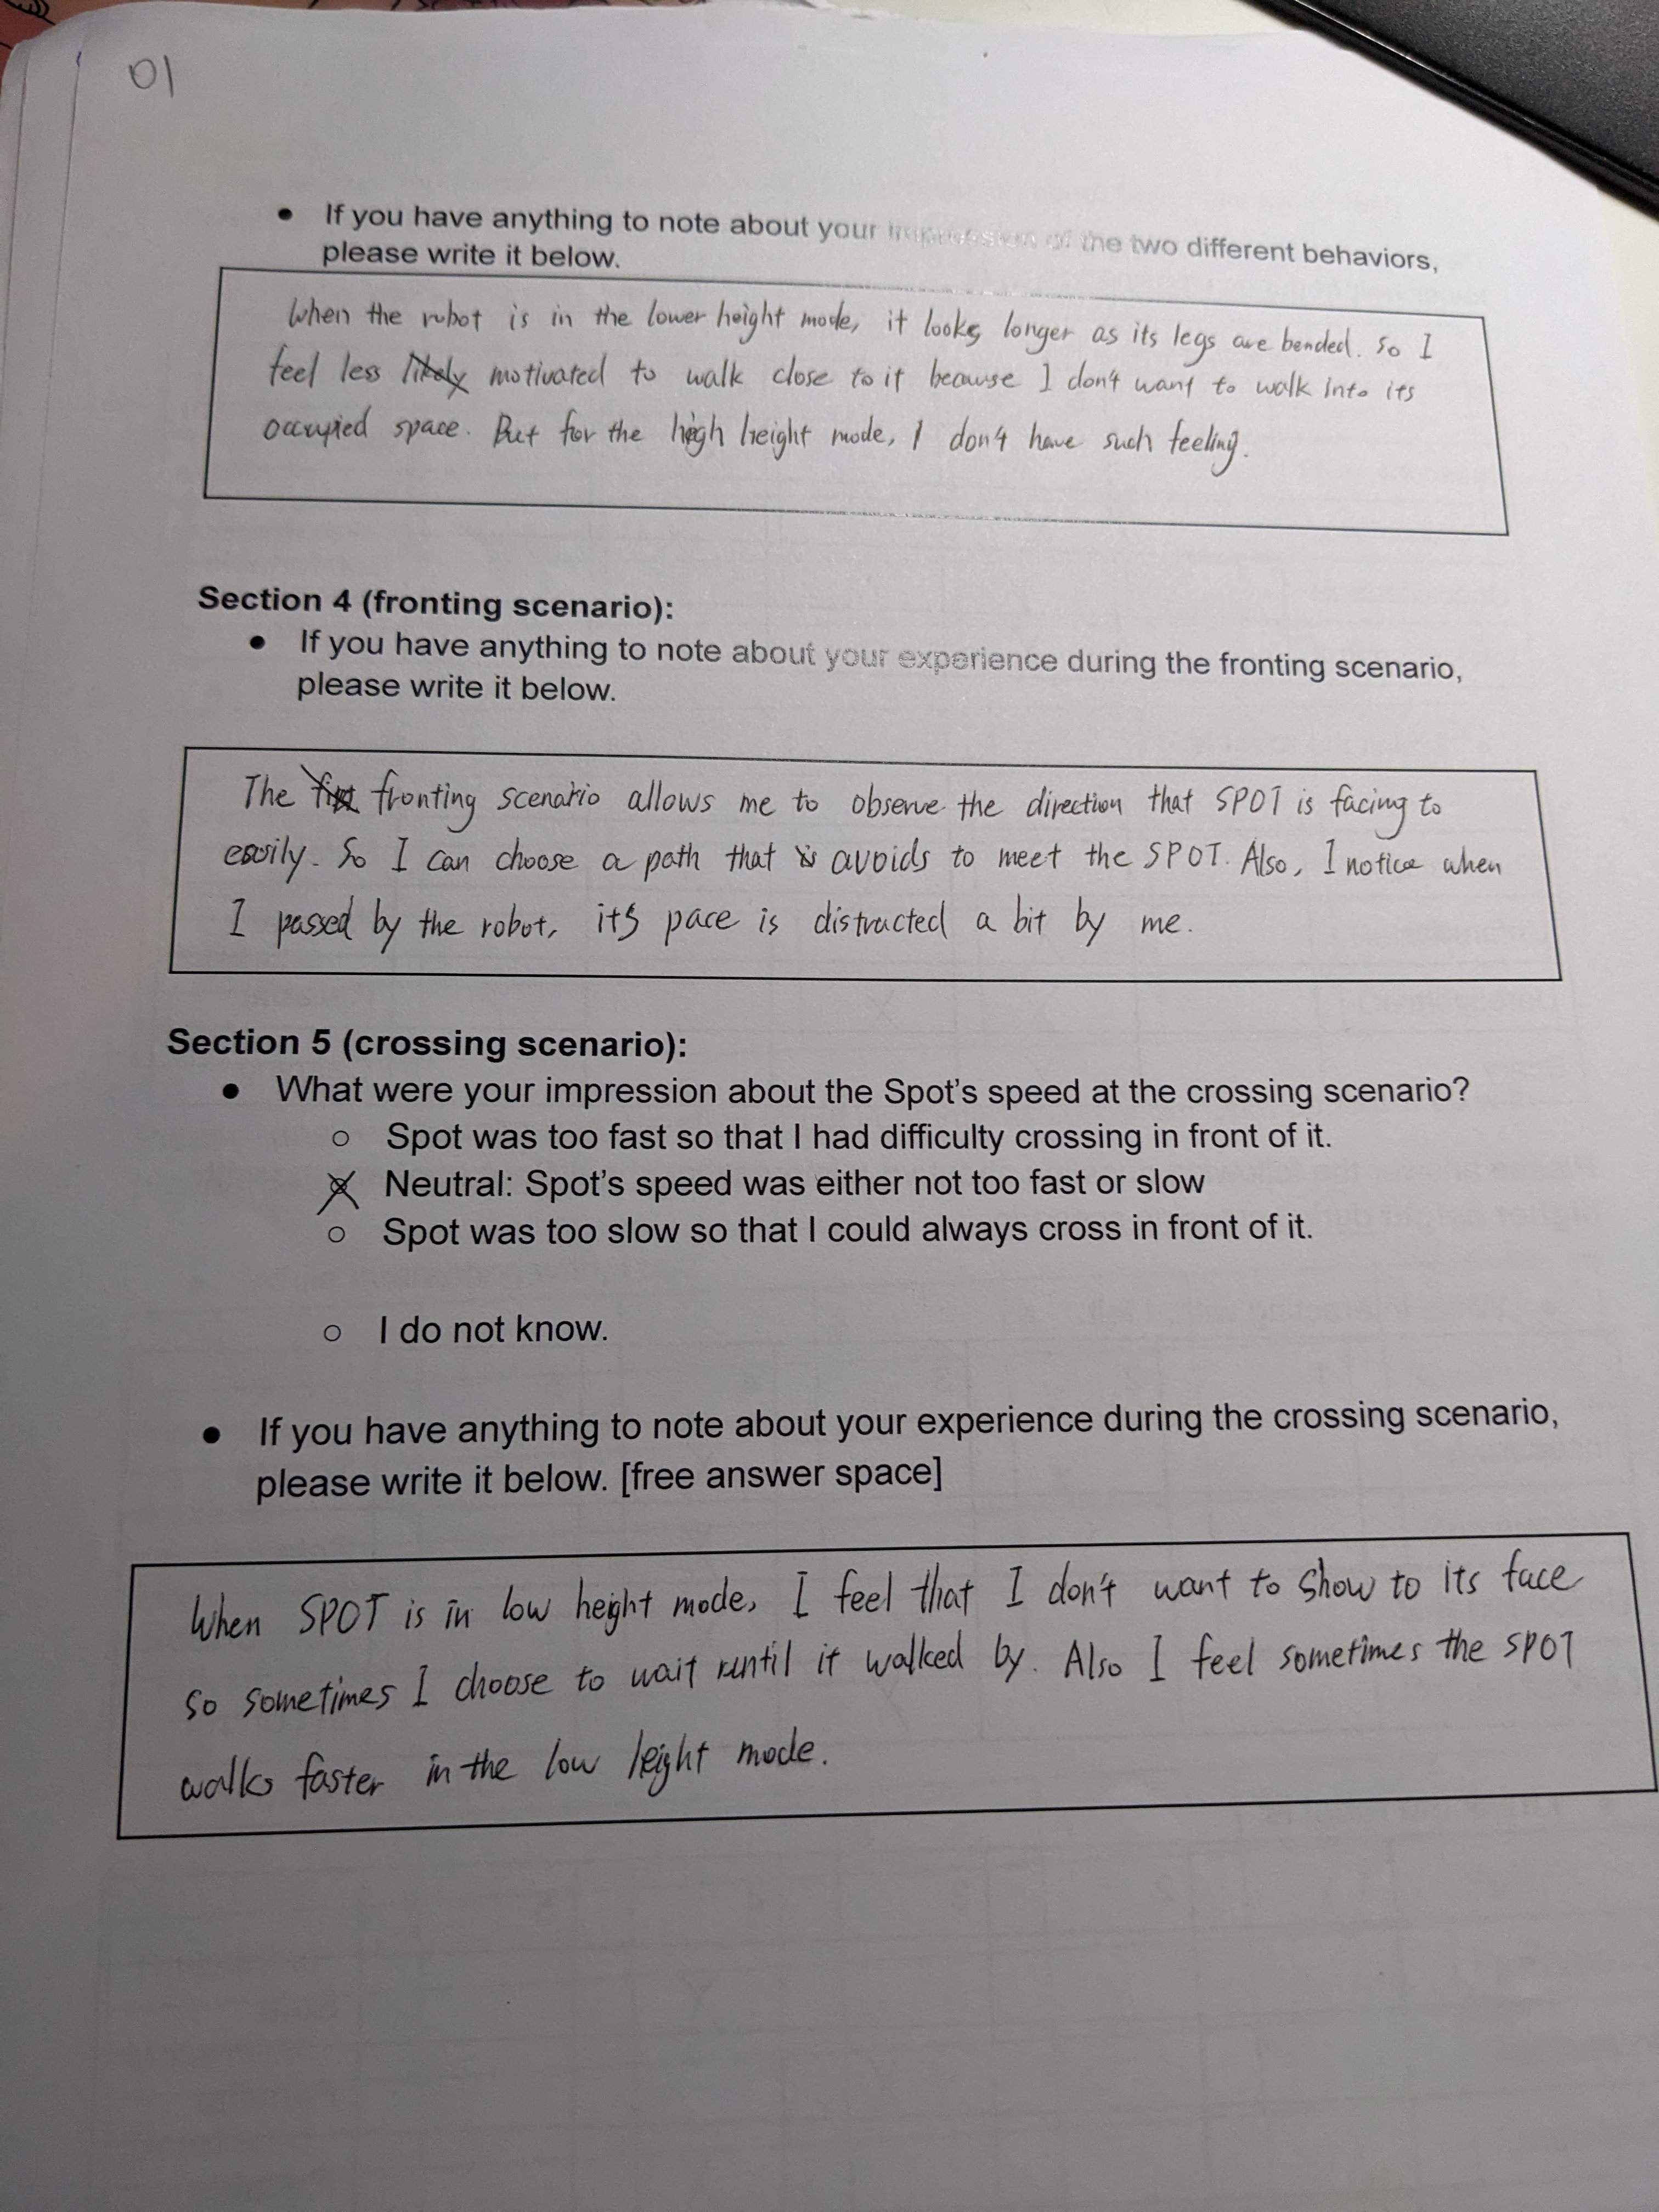 01
• If you have anything to note about your impression of the two different behaviors,
please write it below.
When the robot is in the lower height mode, it looks longer as its legs are bended. So I
feel less likely motivated to walk close to it because I don't want to walk into its
occupied space. But for the high height mode, I don't have such feeling.
Section 4 (fronting scenario):
• If you have anything to note about your experience during the fronting scenario,
please write it below.
The first fronting scenario allows me to observe the direction that SPOT is facing to
easily. So I can choose a path that is avoids to meet the SPOT. Also, I notice when
I passed by the robot, its pace is distracted a bit by me.
Section 5 (crossing scenario):
• What were your impression about the Spot's speed at the crossing scenario?
○ Spot was too fast so that I had difficulty crossing in front of it.
○ Neutral: Spot's speed was either not too fast or slow
○ Spot was too slow so that I could always cross in front of it.
○ I do not know.
• If you have anything to note about your experience during the crossing scenario,
please write it below. [free answer space]
When SPOT is in low height mode, I feel that I don't want to show to its face
so sometimes I choose to wait until it walked by. Also I feel sometimes the SPOT
walks faster in the low height mode.